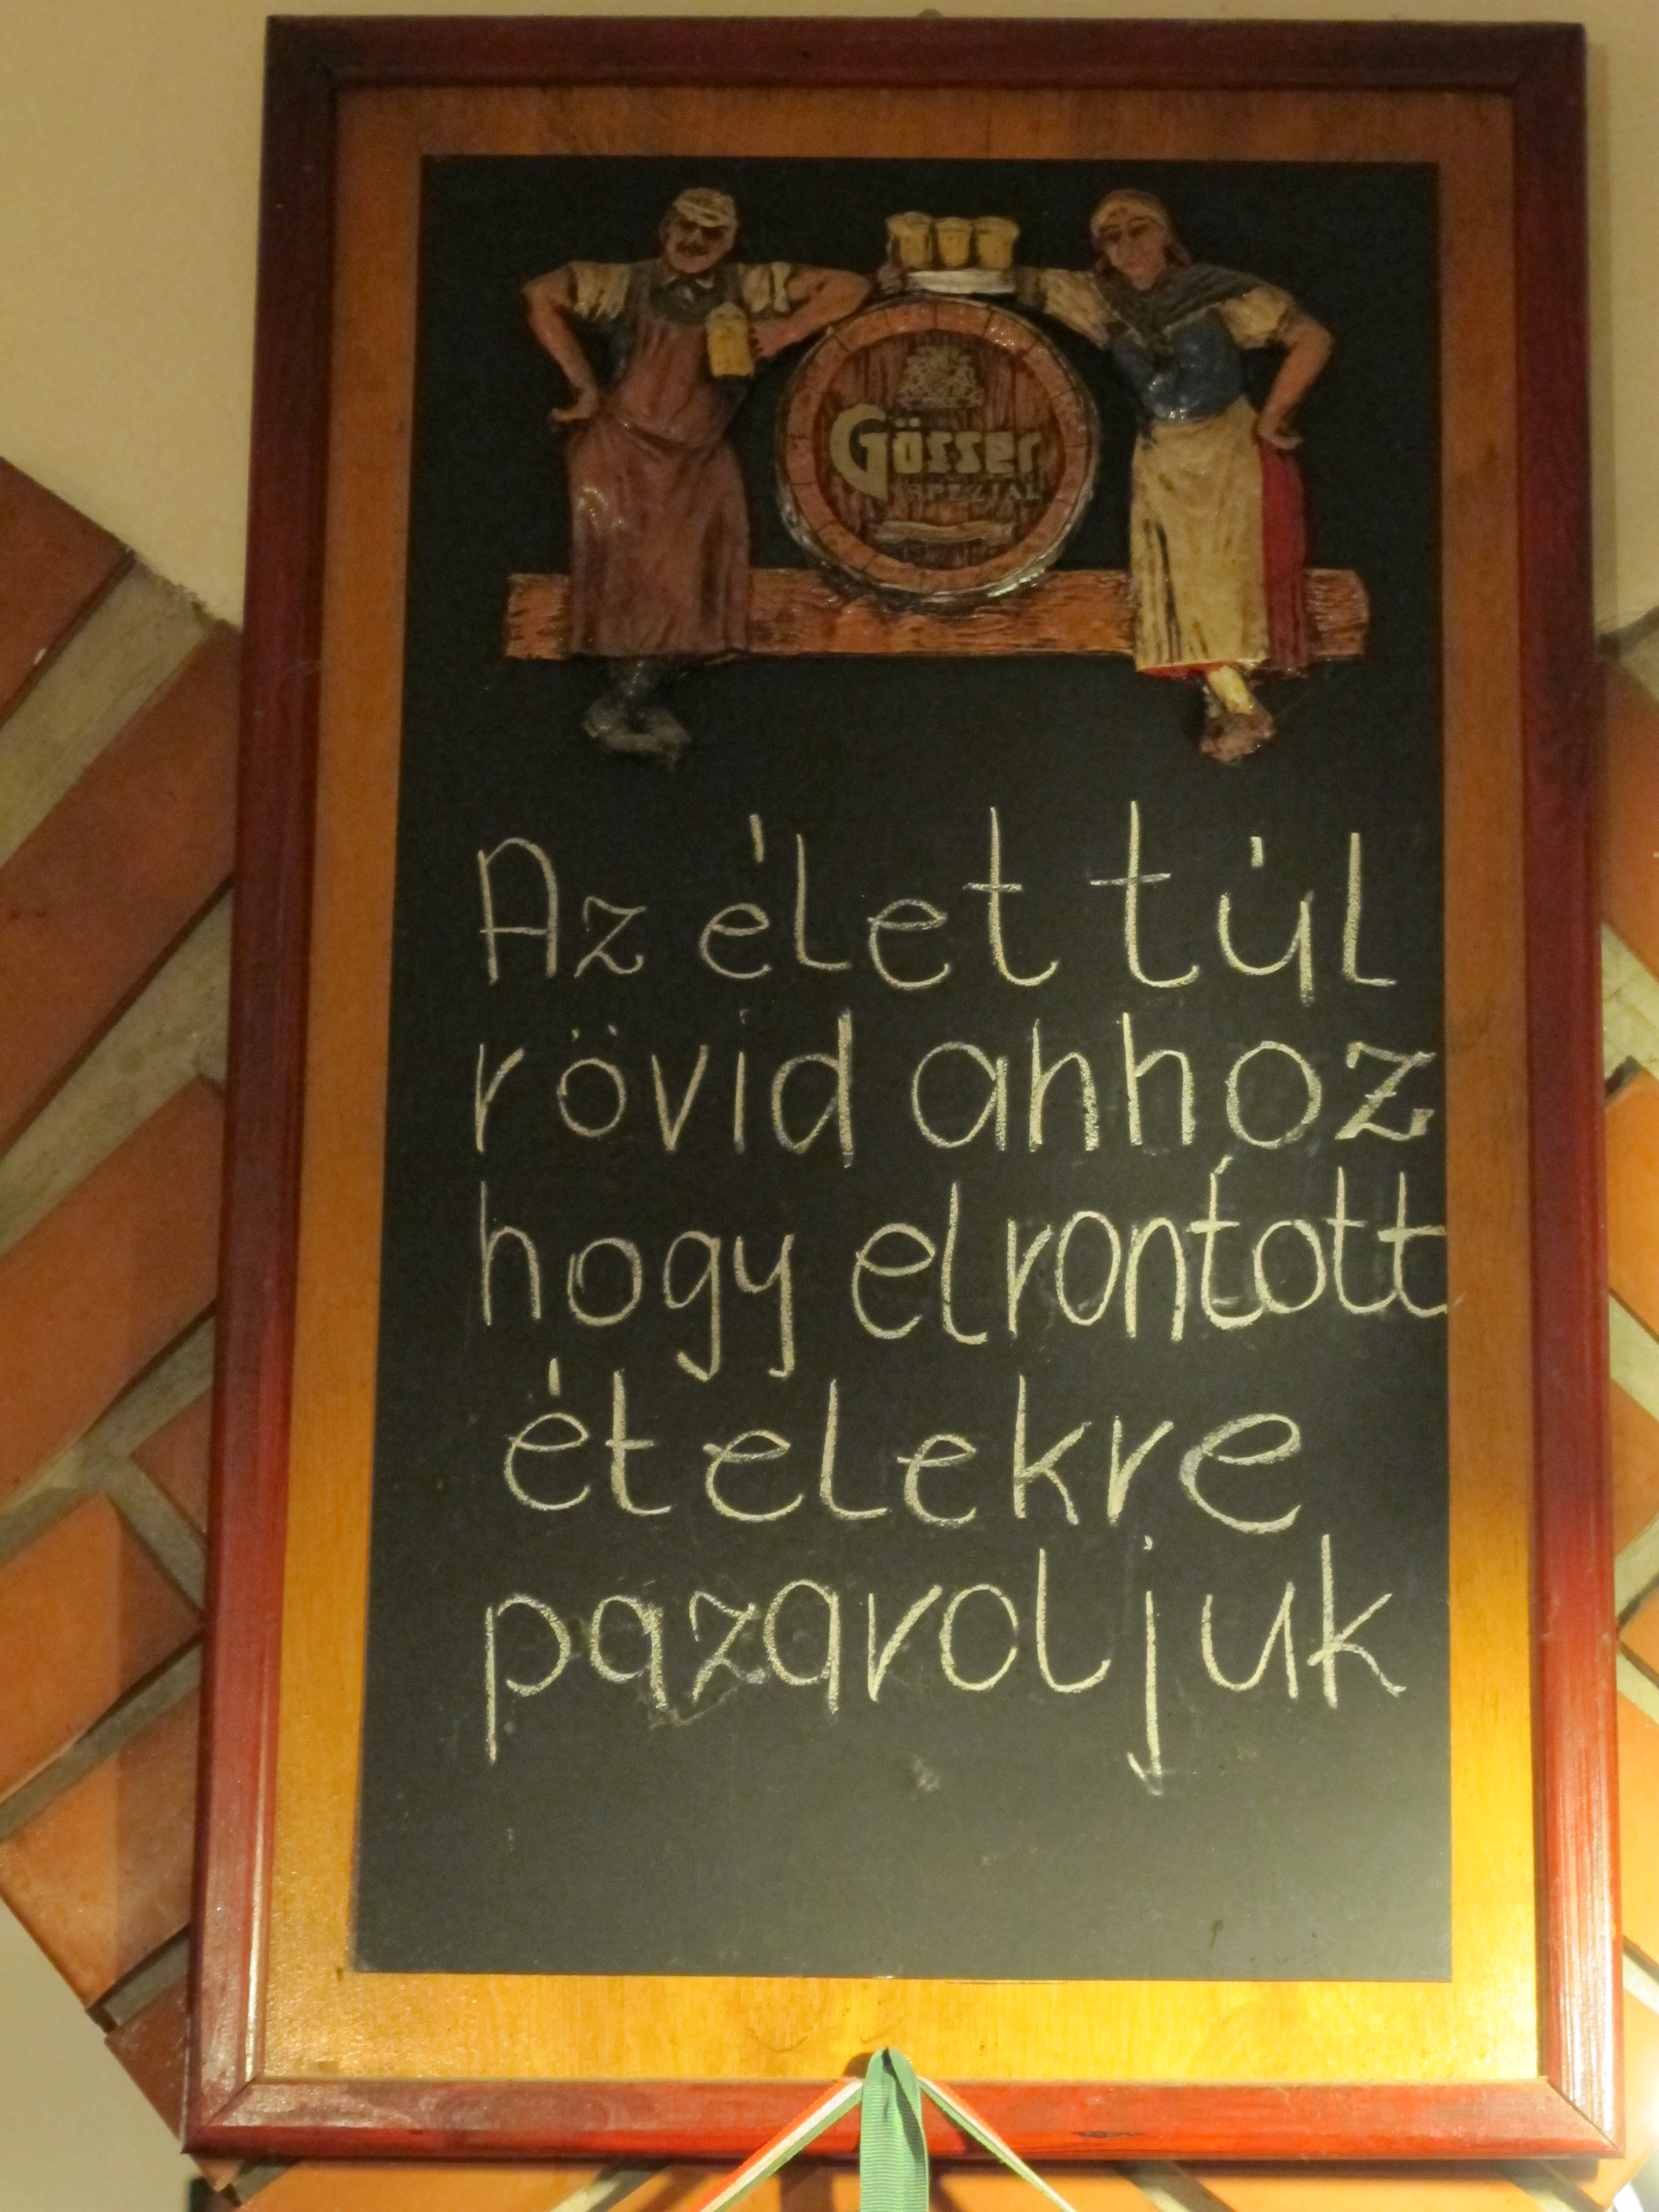 Gösser
SPEZIAL
Az élet túl
rövid ahhoz
hogy elrontott
ételekre
pazaroljuk